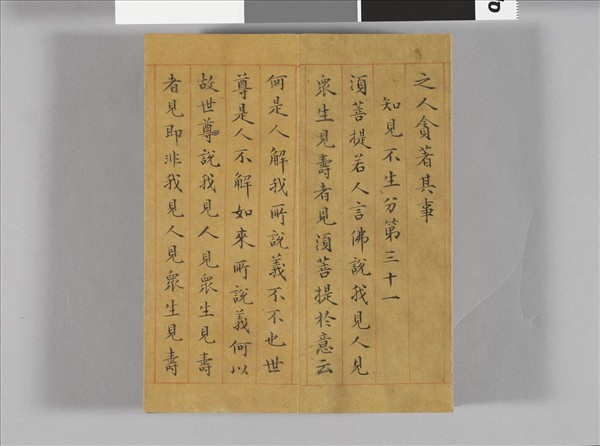 之人貪著其事
知見不生分第三十一
須菩提若人言佛說我見人見
衆生見壽者見須菩提於意云
何是人解我所說義不不也世
尊是人不解如來所說義何以
故世尊說我見人見衆生見壽
者見即非我見人見衆生見壽